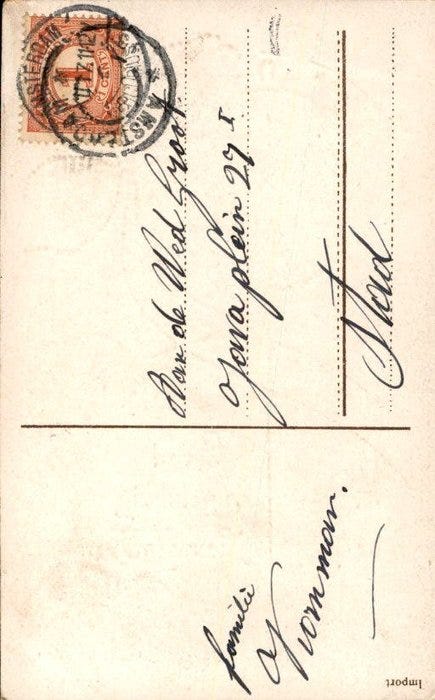 AMSTERDAM
1
CENT
Aan de Wed Groot
Javaplein 27 I
Stad
familie
Import